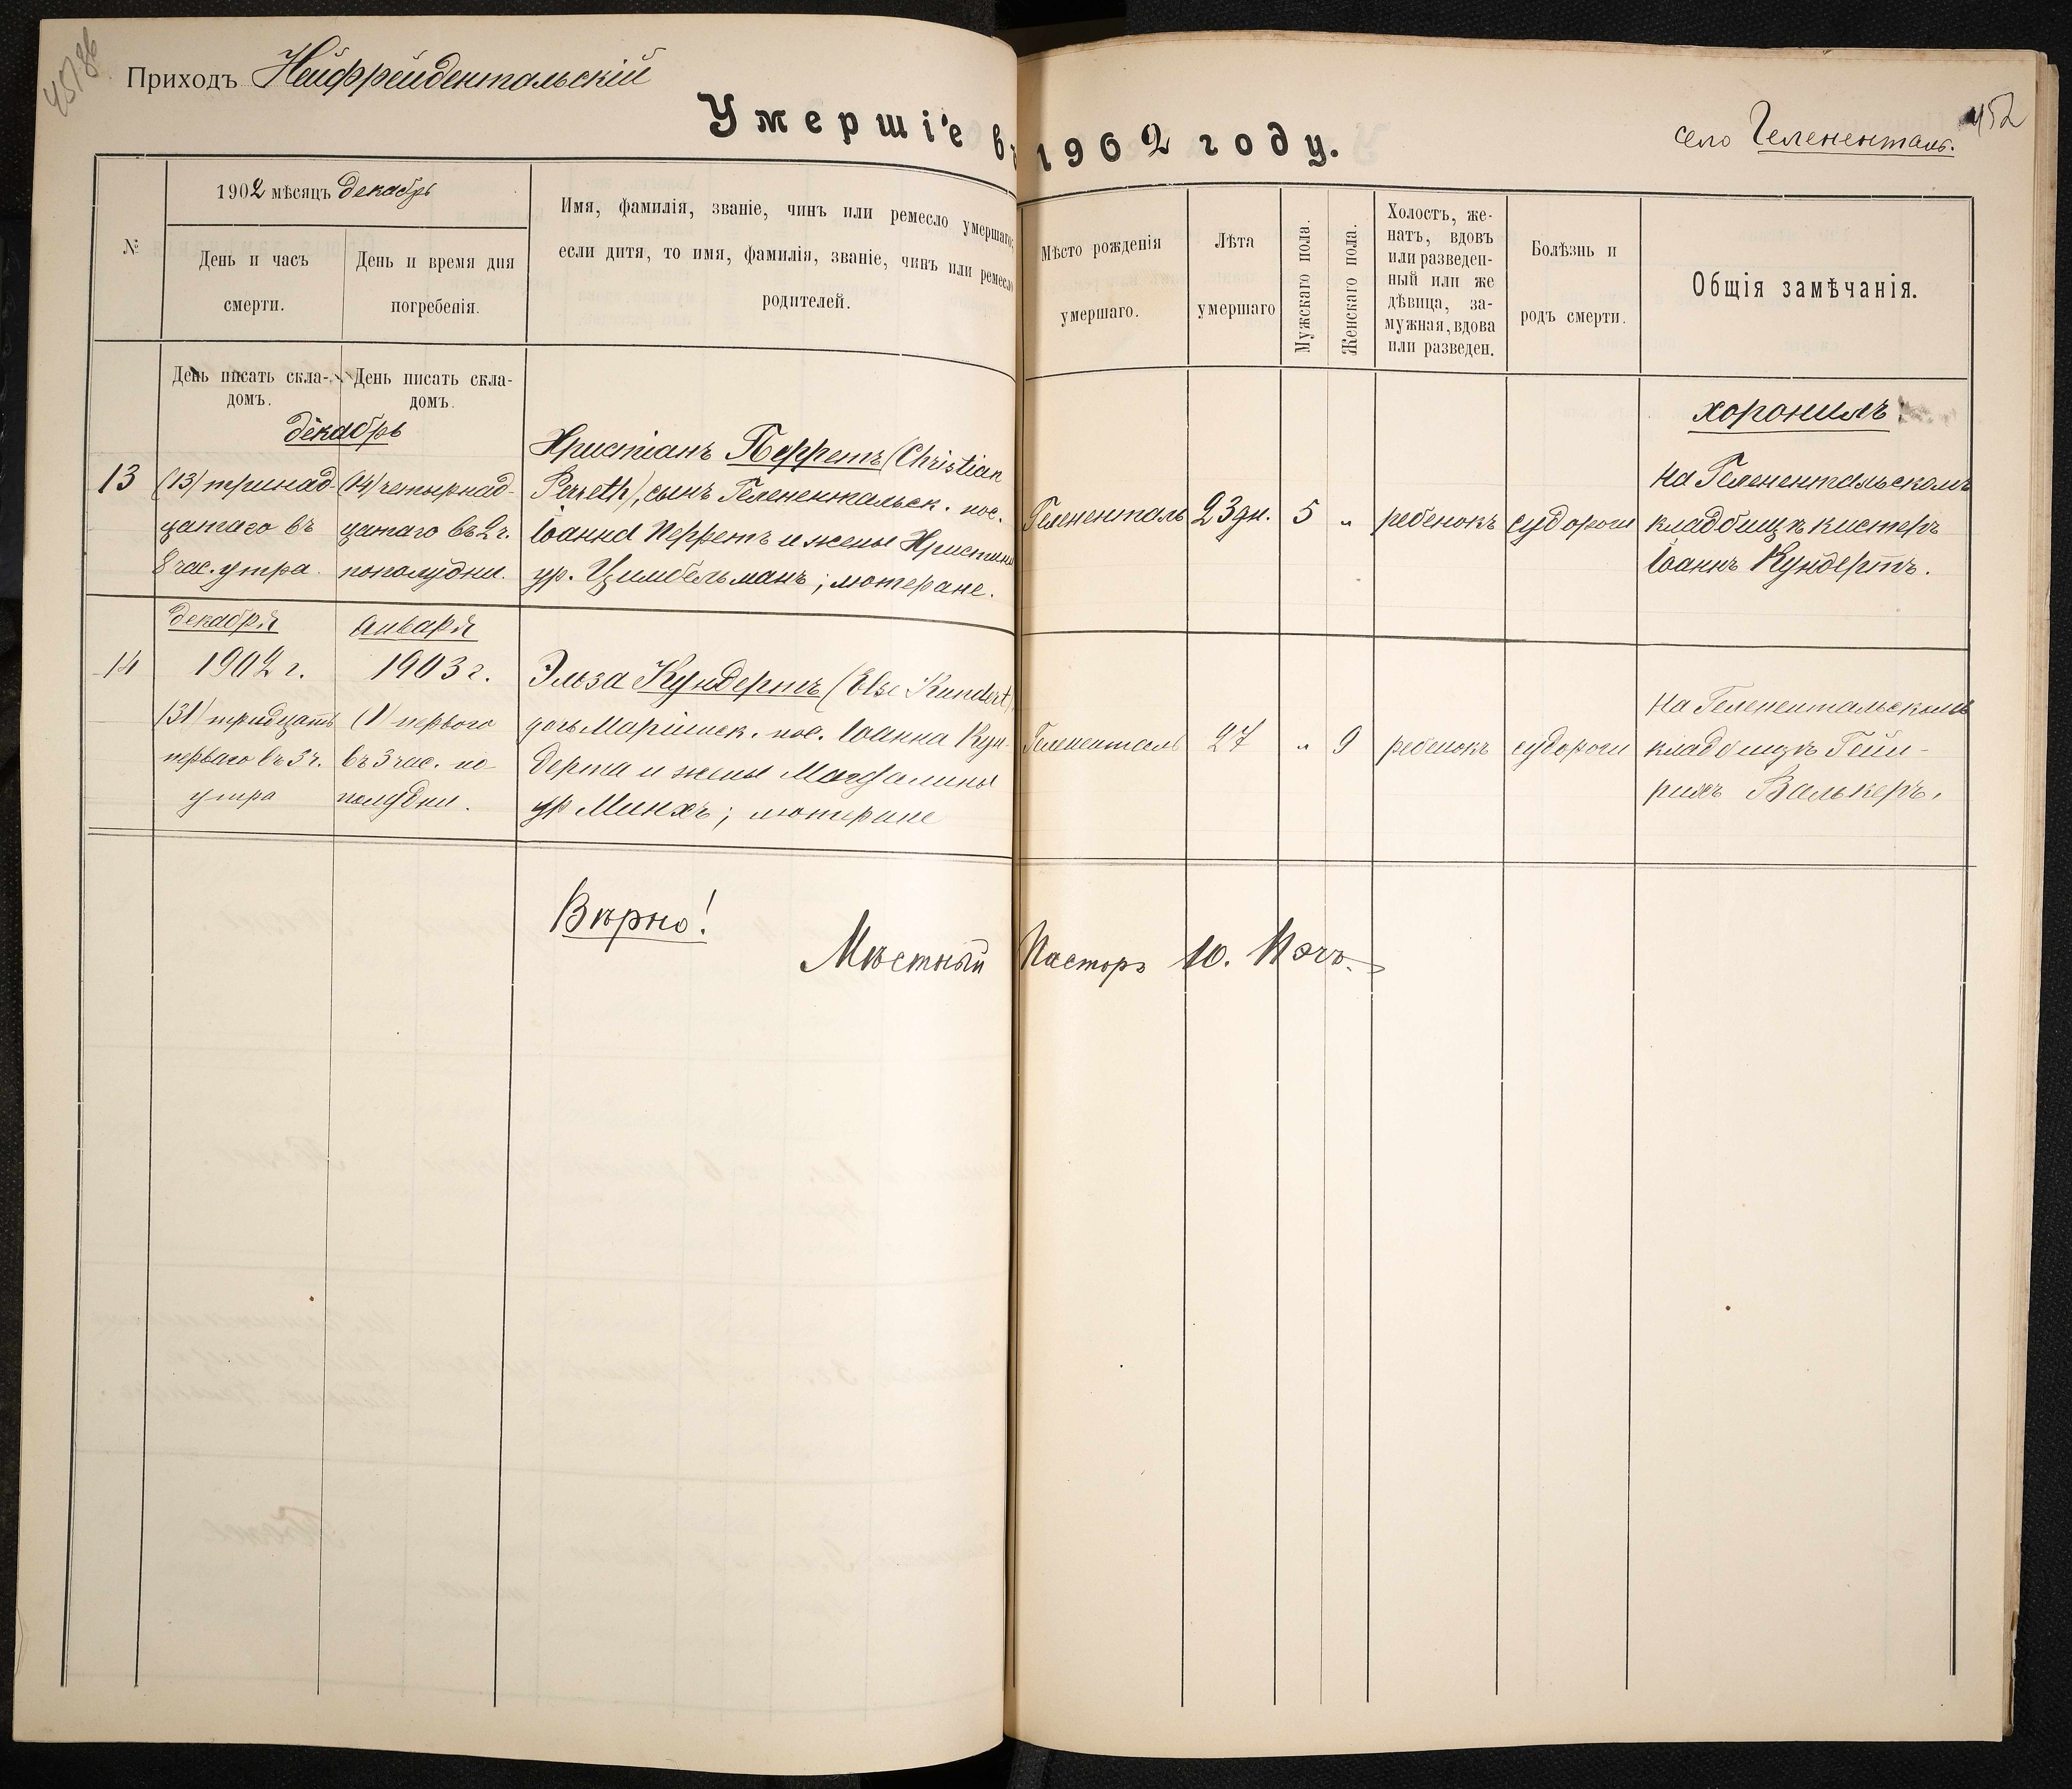 Приходъ Нейфрейдентальскій
Умершіе въ 1902 году.
село Гелененталь.
452
№
1902 мѣсяцъ декабрь
День и часъ
смерти.
День и время дня
погребенія.
Имя, фамилія, званіе, чинъ или ремесло умершаго;
если дитя, то имя, фамилія, званіе, чинъ или ремесло
родителей.
Мѣсто рожденія
умершаго.
Лѣта
умершаго
Мужскаго пола.
Женскаго пола.
Холостъ, же-
натъ, вдовъ
или разведен-
ный или же
дѣвица, за-
мужная, вдова
или разведен.
Болѣзнь и
родъ смерти.
Общія замѣчанія.
День писать скла-
домъ.
День писать скла-
домъ.
декабрь
13
(13) тринад-
цатаго въ
8 час. утра.
(14) четырнад-
цатаго въ 2 ч.
пополудни.
Христіанъ Перретъ (Christian
Perreth), сынъ Геленентальск. пос.
Іоанна Перретъ и жены Христины
ур. Цимбельманъ; лютеране.
Гелененталь
23 дн.
5
"
ребенокъ
судороги
хоронилъ
на Геленентальскомъ
кладбищѣ кистеръ
Іоаннъ Кундертъ.
14
декабря
1902 г.
(31) тридцать
перваго въ 3 ч.
утра
Января
1903 г.
(1) перваго
въ 3 час. по
полудни.
Эльза Кундертъ (Else Kundert),
дочь Маріинск. пос. Іоанна Кун-
дерта и жены Магдалины
ур Минхъ; лютеране
Гелененталь
27
"
9
ребенокъ
судороги
на Геленентальскомъ
кладбищѣ Гейн-
рихъ Валькеръ.
Вѣрно!
Мѣстный Пасторъ Ю. Пэчъ.